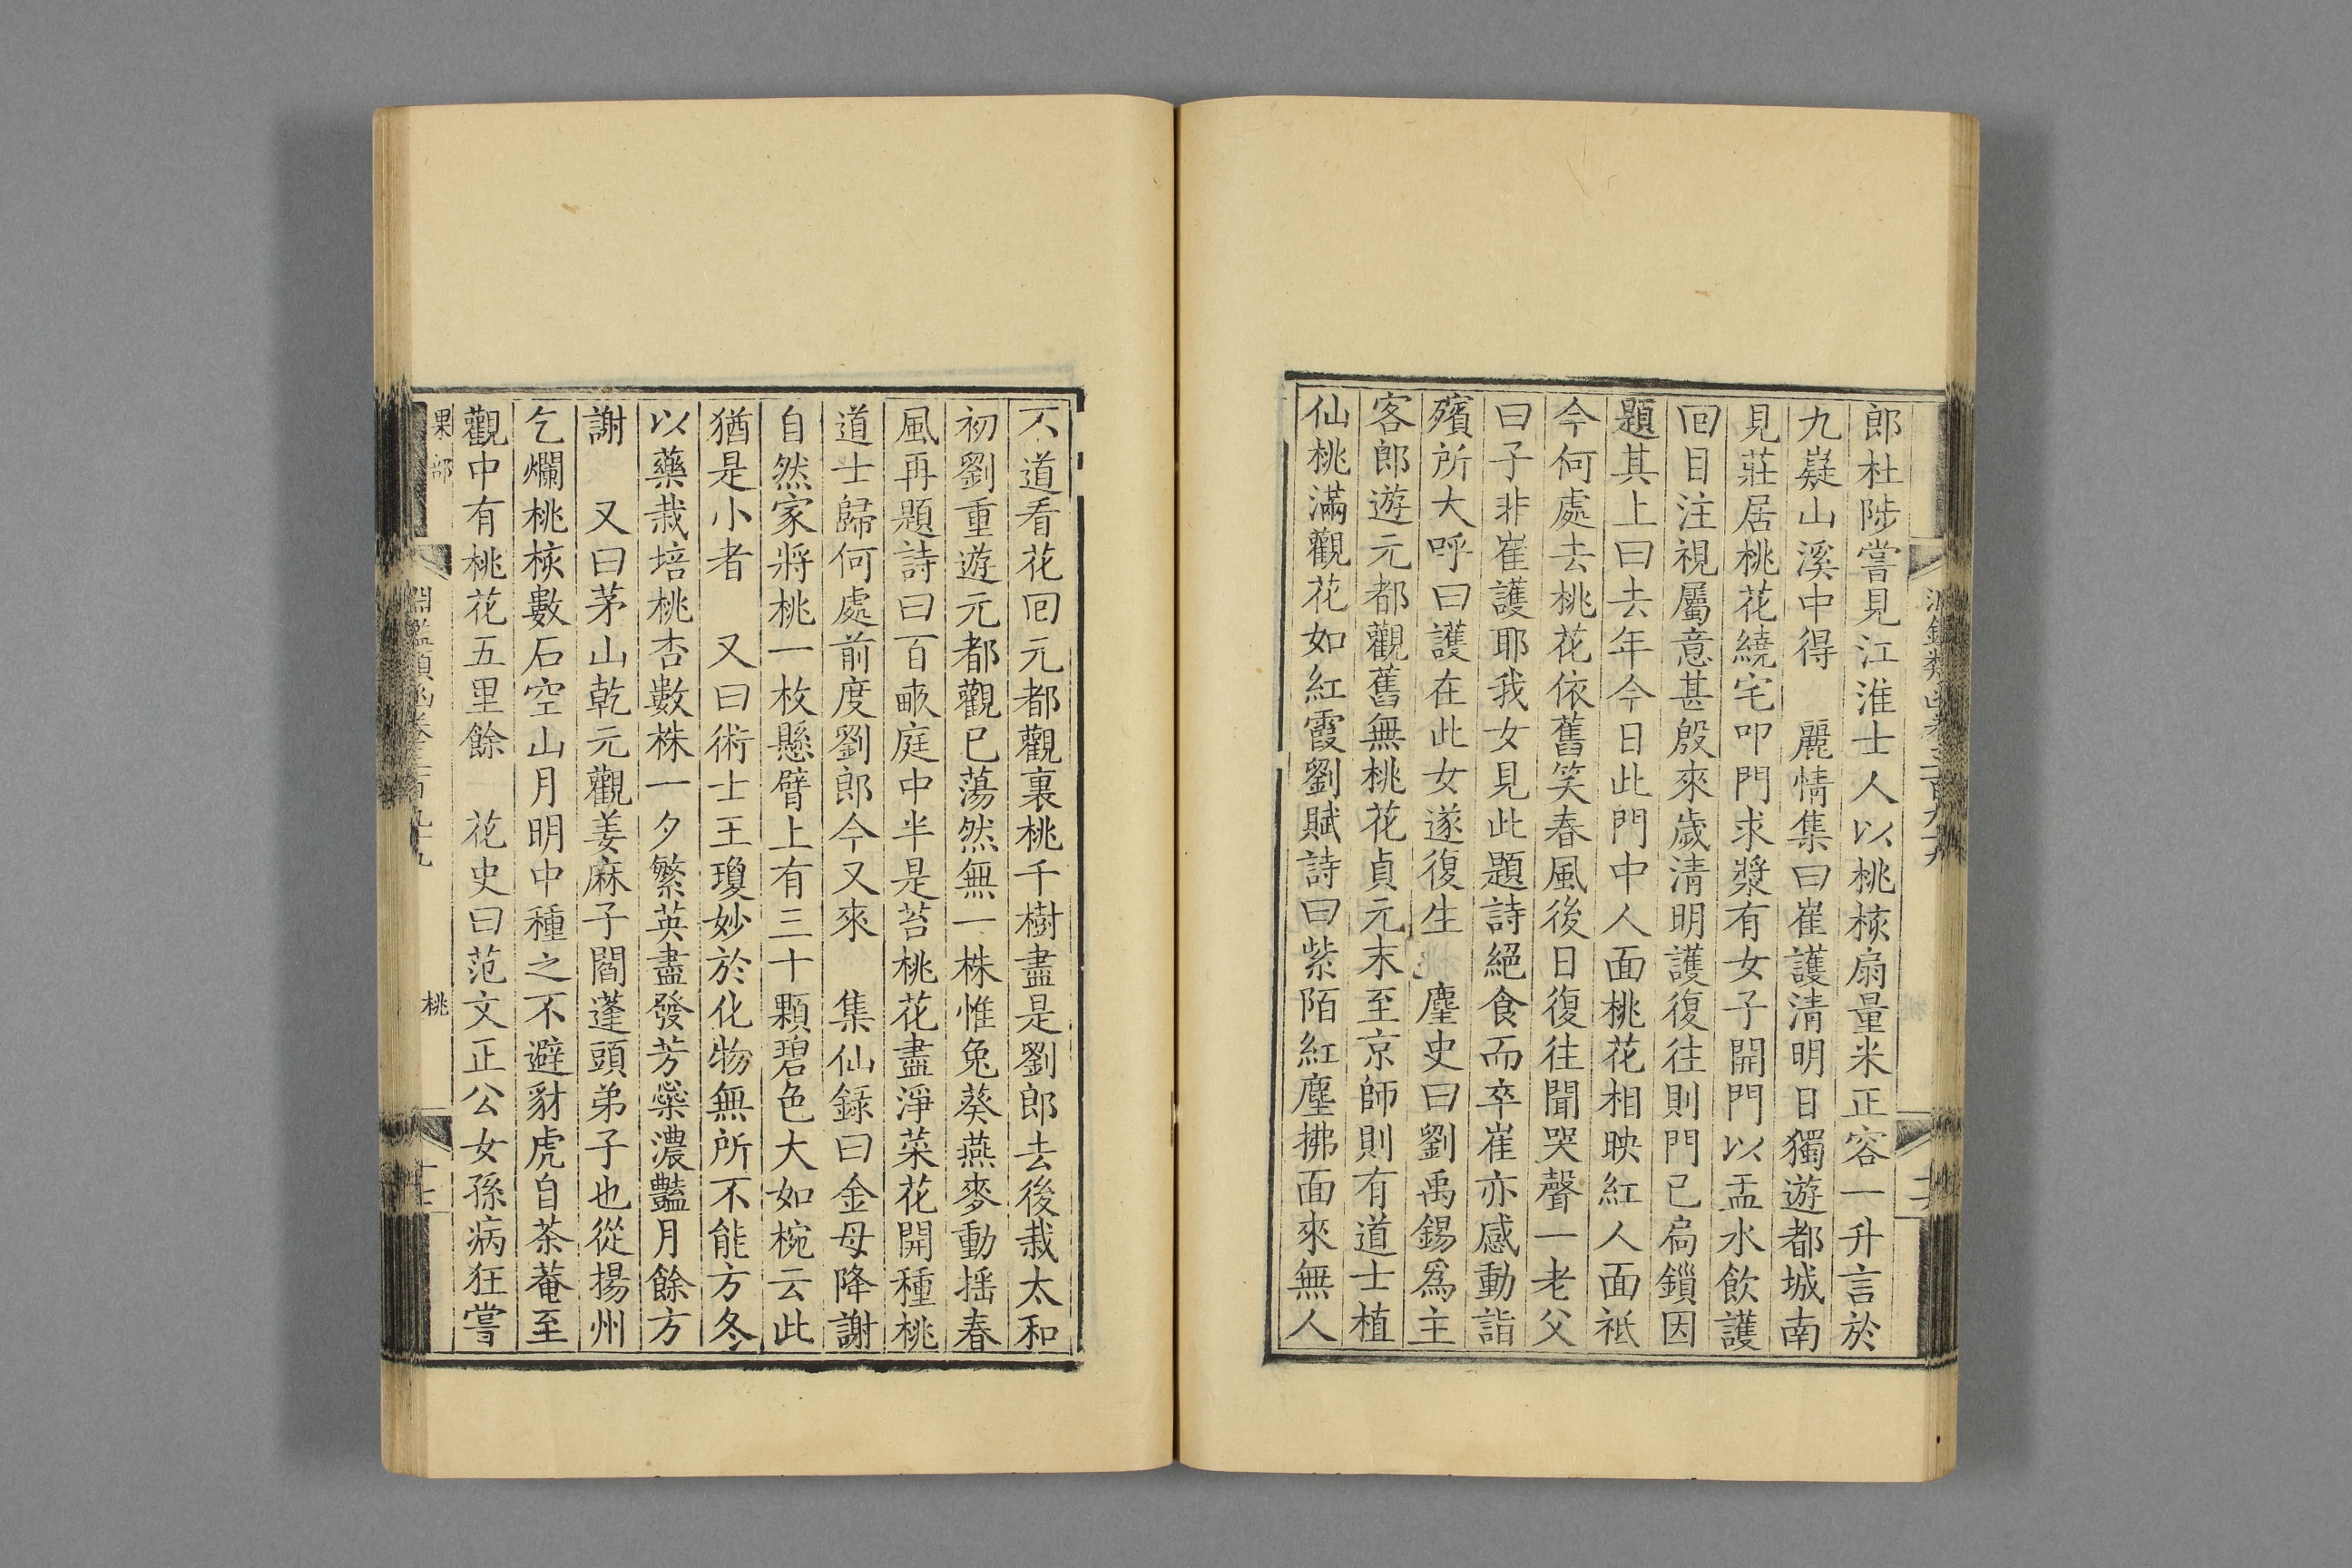 郎杜陟嘗見江淮士人以桃核扇量米正容一升言於
九嶷山溪中得　麗情集曰崔護清明日獨遊都城南
見莊居桃花繞宅叩門求漿有女子開門以盂水飲護
囘目注視屬意甚殷來歲清明護復往則門已扃鎖因
題其上曰去年今日此門中人面桃花相映紅人面祗
今何處去桃花依舊笑春風後日復往聞哭聲一老父
曰子非崔護耶我女見此題詩絕食而卒崔亦感動詣
殯所大呼曰護在此女遂復生　塵史曰劉禹錫爲主
客郎遊元都觀舊無桃花貞元末至京師則有道士植
仙桃滿觀花如紅霞劉賦詩曰紫陌紅塵拂面來無人
不道看花囘元都觀裏桃千樹盡是劉郎去後栽太和
初劉重遊元都觀已蕩然無一株惟兔葵燕麥動搖春
風再題詩曰百畝庭中半是苔桃花盡淨菜花開種桃
道士歸何處前度劉郎今又來　集仙錄曰金母降謝
自然家將桃一枚懸臂上有三十顆碧色大如椀云此
猶是小者　又曰術士王瓊妙於化物無所不能方冬
以藥栽培桃杏數株一夕繁英盡發芳蘂濃豔月餘方
謝　又曰茅山乾元觀姜麻子閻蓬頭弟子也從揚州
乞爛桃核數石空山月明中種之不避豺虎自茶菴至
觀中有桃花五里餘　花史曰范文正公女孫病狂嘗
果部
淵鑑類函卷三百九十九
桃